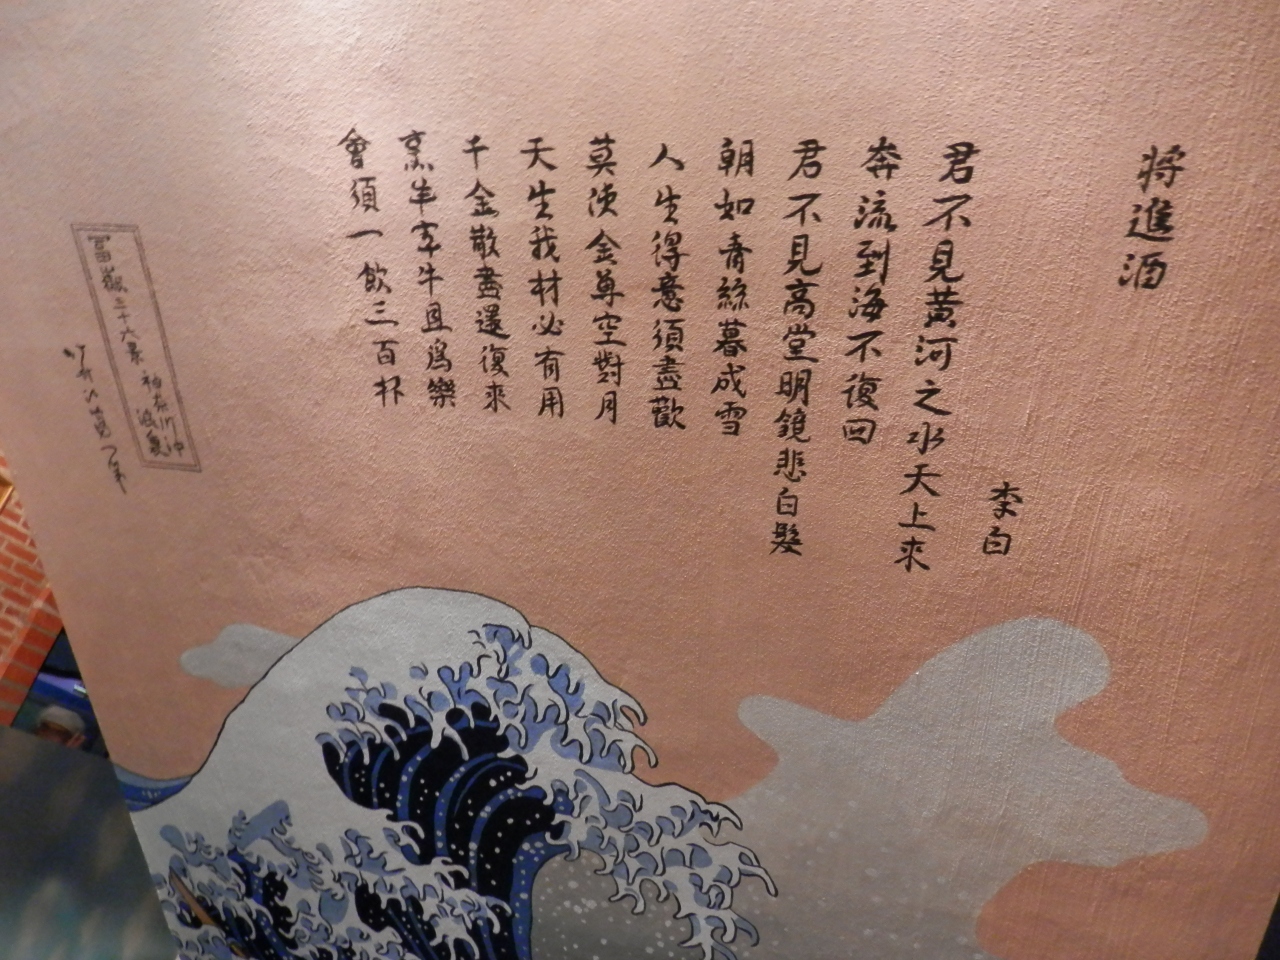 將進酒
李白
君不見黃河之水天上來
奔流到海不復回
君不見高堂明鏡悲白髮
朝如青絲暮成雪
人生得意須盡歡
莫使金尊空對月
天生我材必有用
千金散盡還復來
烹羊宰牛且為樂
會須一飲三百杯
冨嶽三十六景 神奈川沖
浪裏